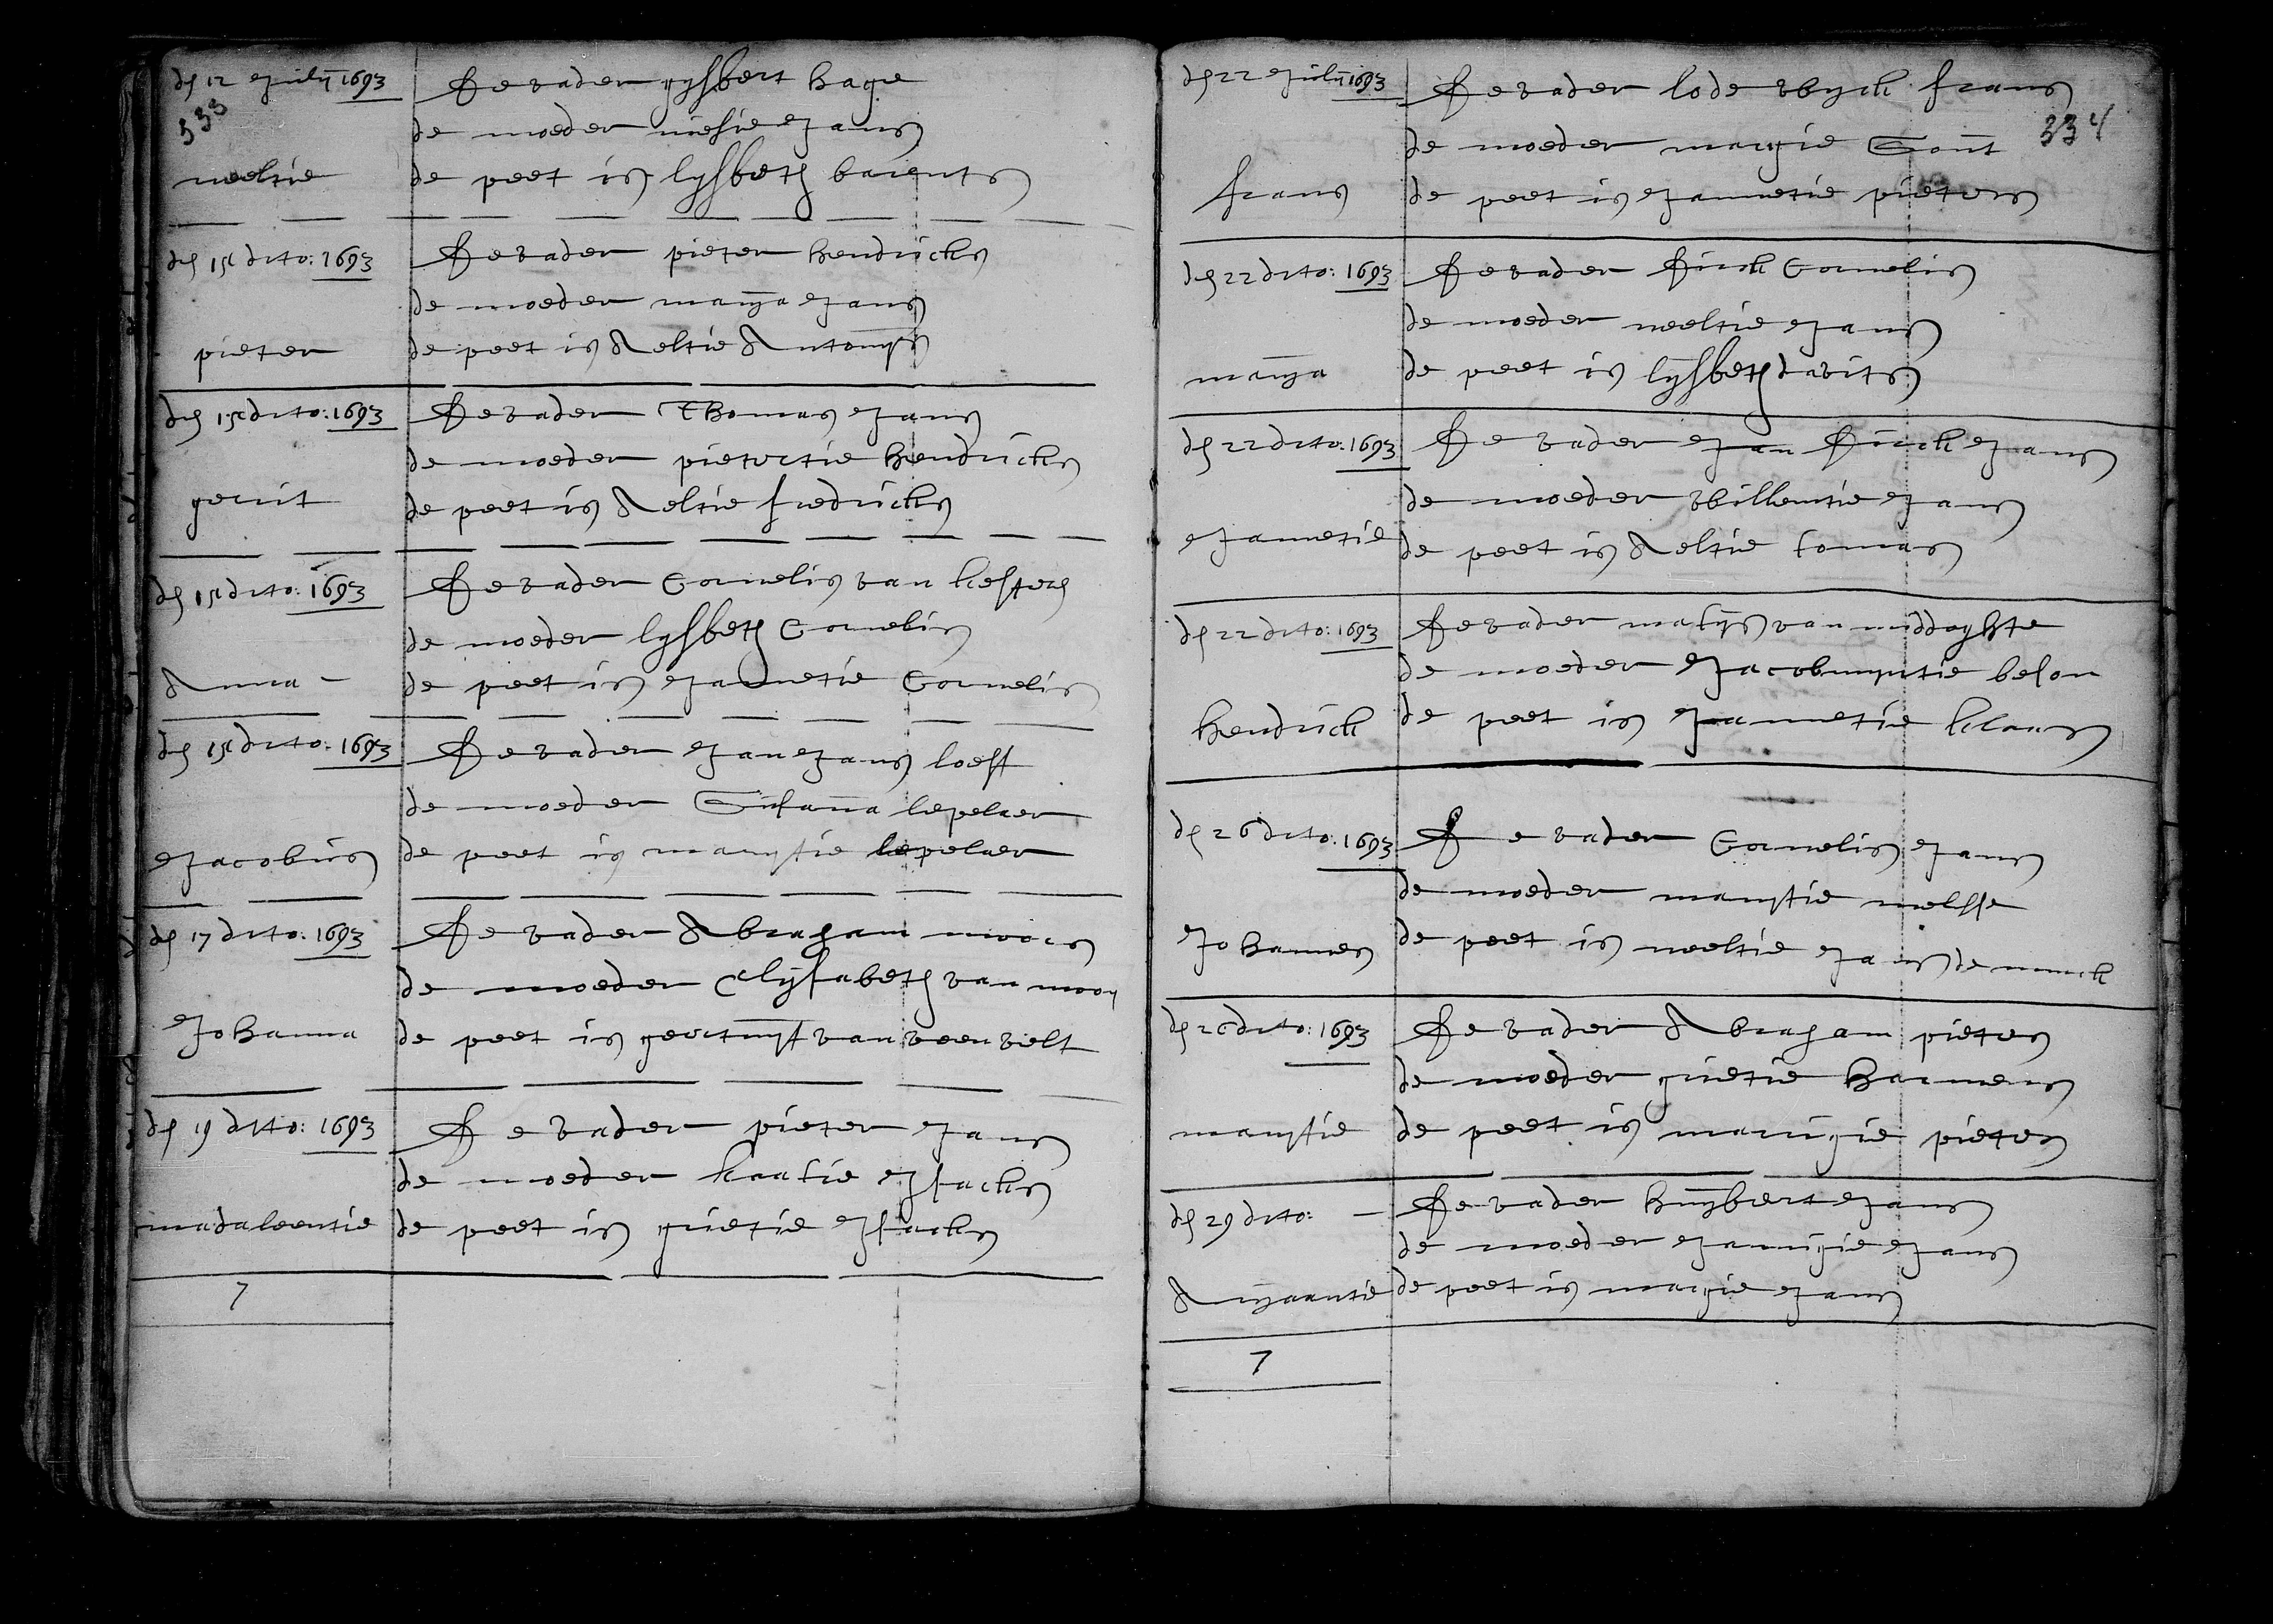 den 12 Julij 1693
333
De vader gijsbert hage
de moeder niesie Jans
neeltie
de peet is lijsbeth barents
den 15 dito: 1693
De vader pieter hendricks
de moeder marija Jans
pieter
de peet is Aeltie Antonijs
den 15 dito: 1693
De vader Thomas Jans
de moeder pietertie hendricks
gerrit
de peet is Aeltie fredricks
den 15 dito: 1693
De vader Cornelis van kesteren
de moeder lijsbeth Cornelis
Anna -
de peet is Jannetie Cornelis
den 15 dito: 1693
De vader Jan Jans loeff
de moeder Susanna lepelaer
Jacobus
de peet is marijtie lepelaer
den 17 dito: 1693
De vader Abraham moors
de moeder Elijsabeth van mooy
Johanna
de peet is geertruijt van veenvelt
den 19 dito: 1693
De vader pieter Jans
de moeder kaatie Isacks
madaleentie
de peet is grietie Isacks
7
den 22 Julij 1693
De vader lodewyck frans
de moeder margie Sout
334
frans
de peet is Jannetie pieters
den 22 dito: 1693
De vader Dirck Cornelis
de moeder neeltie Jans
marija
de peet is lijsbeth davits
den 22 dito: 1693
De vader Jan Dirck Jans
de moeder willemtie Jans
Jannetie
de peet is Aeltie tomas
den 22 dito: 1693
De vader matijs van middaghte
de moeder Jacobmyntie beson
hendrick
de peet is Jannetie klaas
den 26 dito: 1693
De vader Cornelis Jans
de moeder marijtie melsse
Johannes
de peet is neeltie Jans de munck
den 26 dito: 1693
De vader Abraham pieters
de moeder grietie harmens
marijtie
de peet is marrigie pieters
den 29 dito: -
De vader huijbert Jans
de moeder Jannigie Jans
Arijaantie
de peet is margie Jans
7